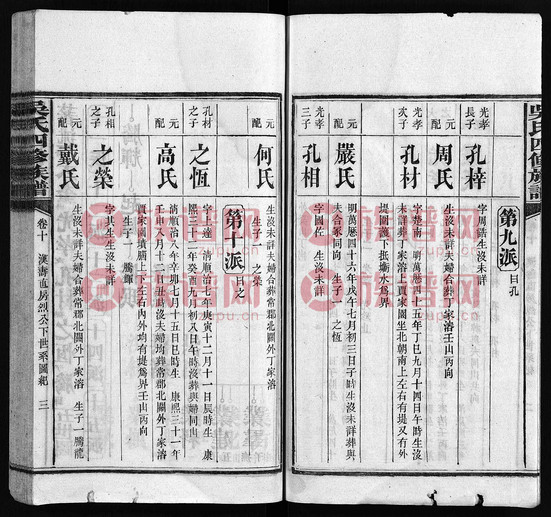 吳氏四修族譜
第九派 曰孔
光孝長子 孔梓 字周錯生沒未詳
元配 周氏 生沒未詳夫婦合葬常郡北關外丁家溶壬山丙向
光孝次子 孔材 字楚南 明萬歷四十五年丁巳九月十四日午時生沒
未詳葬丁家溶上賈家園坐北朝南上左右有堤又有外
堤圍簾下抵壩水為界
元配 嚴氏 明萬歷四十六年戊午七月初三日子時生沒未詳葬與
夫合冢同向 生子一 之恆
光孝三子 孔相 字國佐 生沒未詳
元配 何氏 生沒未詳夫婦合葬常郡北關外丁家溶
生子一 之榮
第十派 曰之
孔材之子 之恆 字士達 清順治七年庚寅十二月十一日辰時生 康
熙三十二年癸酉九月初八日午時沒葬與婦同山
元配 高氏 清順治八年辛卯七月十五日巳時生 康熙三十一年
壬申八月十二日辰時沒夫婦均葬常郡北關外丁家溶
賈家園墳腦上下左右內外均有堤為界壬山丙向
生子一 騰輝
孔相之子 之榮 字其生生沒未詳
元配 戴氏 生沒未詳夫婦合葬常郡北關外丁家溶 生子一 騰龍
吳氏四修族譜 卷十 漢壽直房烈公下世系圖紀 三